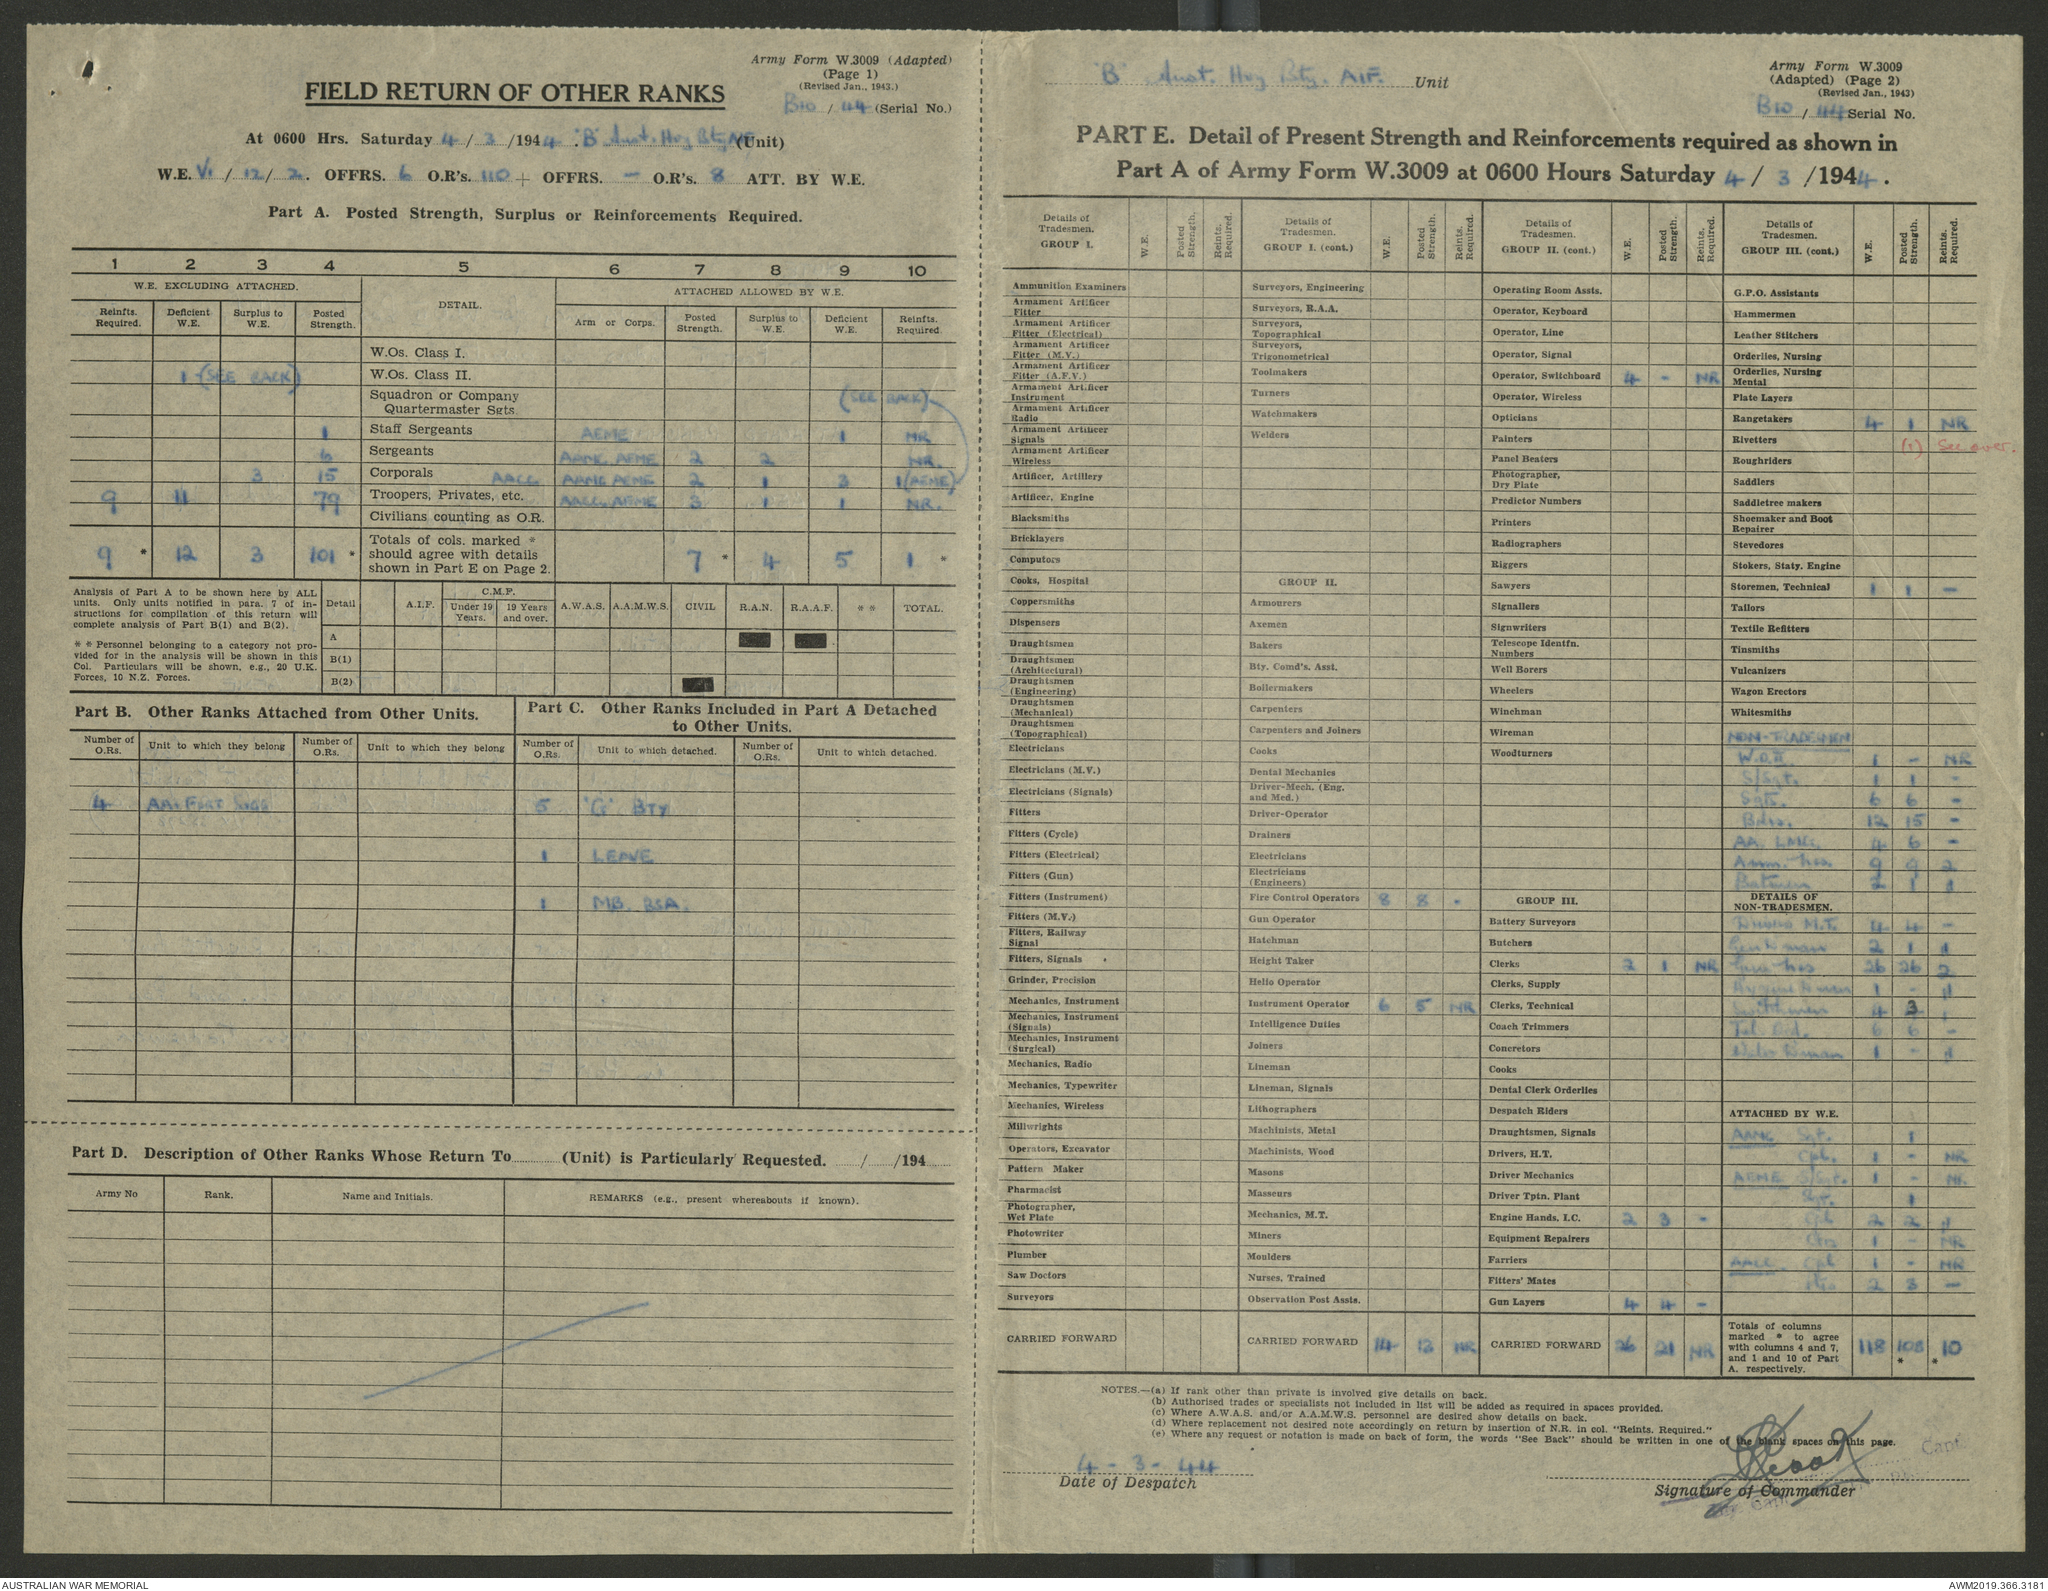 Army Form W.3009 (Adapted)
(Page 1)
(Revised Jan., 1943.)
B10 / 44 (Serial No.)
FIELD RETURN OF OTHER RANKS
At 0600 Hrs. Saturday 4 / 3 / 1944 'B' Aust. Hvy Bty (Unit)
W.E. VI / 12 / 2. OFFRS. 6 O.R's. 110 + OFFRS. — O.R's. 8 ATT. BY W.E.
Part A. Posted Strength, Surplus or Reinforcements Required.
1 2 3 4 5 6 7 8 9 10
W.E. EXCLUDING ATTACHED. DETAIL. ATTACHED ALLOWED BY W.E.
Reinfts. Required. Deficient W.E. Surplus to W.E. Posted Strength. Arm or Corps. Posted Strength. Surplus to W.E. Deficient W.E. Reinfts. Required.
W.Os. Class I.
1 (SEE BACK) W.Os. Class II.
Squadron or Company Quartermaster Sgts. (SEE BACK)
1 Staff Sergeants AEME 1 NR
6 Sergeants AAMC, AEME 2 2 NR.
3 15 Corporals AACC AAMC AEME 2 1 3 1 (AEME)
9 11 79 Troopers, Privates, etc. AACC, AEME 3 1 1 NR.
Civilians counting as O.R.
9 * 12 3 101 * Totals of cols. marked * should agree with details shown in Part E on Page 2. 7 * 4 5 1 *
Analysis of Part A to be shown here by ALL units. Only units notified in para. 7 of instructions for compilation of this return will complete analysis of Part B(1) and B(2).
* * Personnel belonging to a category not provided for in the analysis will be shown in this Col. Particulars will be shown, e.g., 20 U.K. Forces, 10 N.Z. Forces.
Detail A.I.F. C.M.F. Under 19 Years. 19 Years and over. A.W.A.S. A.A.M.W.S. CIVIL R.A.N. R.A.A.F. * * TOTAL.
A
B(1)
B(2)
Part B. Other Ranks Attached from Other Units.
Part C. Other Ranks Included in Part A Detached to Other Units.
Number of O.Rs. Unit to which they belong Number of O.Rs. Unit to which they belong Number of O.Rs. Unit to which detached. Number of O.Rs. Unit to which detached.
4 AA. FORT SIGS 5 'G' BTY
1 LEAVE
1 MB. BSA.
Part D. Description of Other Ranks Whose Return To (Unit) is Particularly Requested. / /194
Army No Rank. Name and Initials. REMARKS (e.g., present whereabouts if known).
'B' Aust. Hvy Bty. AIF. Unit
Army Form W.3009
(Adapted) (Page 2)
(Revised Jan., 1943)
B10 / 44 Serial No.
PART E. Detail of Present Strength and Reinforcements required as shown in
Part A of Army Form W.3009 at 0600 Hours Saturday 4 / 3 / 1944.
Details of Tradesmen. GROUP I. W.E. Posted Strength. Reints. Required.
Ammunition Examiners
Armament Artificer Fitter
Armament Artificer Fitter (Electrical)
Armament Artificer Fitter (M.V.)
Armament Artificer Fitter (A.F.V.)
Armament Artificer Instrument
Armament Artificer Radio
Armament Artificer Signals
Armament Artificer Wireless
Artificer, Artillery
Artificer, Engine
Blacksmiths
Bricklayers
Computors
Cooks, Hospital
Coppersmiths
Dispensers
Draughtsmen
Draughtsmen (Architectural)
Draughtsmen (Engineering)
Draughtsmen (Mechanical)
Draughtsmen (Topographical)
Electricians
Electricians (M.V.)
Electricians (Signals)
Fitters
Fitters (Cycle)
Fitters (Electrical)
Fitters (Gun)
Fitters (Instrument)
Fitters (M.V.)
Fitters, Railway Signal
Fitters, Signals
Grinder, Precision
Mechanics, Instrument
Mechanics, Instrument (Signals)
Mechanics, Instrument (Surgical)
Mechanics, Radio
Mechanics, Typewriter
Mechanics, Wireless
Millwrights
Operators, Excavator
Pattern Maker
Pharmacist
Photographer, Wet Plate
Photowriter
Plumber
Saw Doctors
Surveyors
CARRIED FORWARD
Details of Tradesmen. GROUP I. (cont.) W.E. Posted Strength. Reints. Required.
Surveyors, Engineering
Surveyors, R.A.A.
Surveyors, Topographical
Surveyors, Trigonometrical
Toolmakers
Turners
Watchmakers
Welders
GROUP II.
Armourers
Axemen
Bakers
Bty. Comd's. Asst.
Boilermakers
Carpenters
Carpenters and Joiners
Cooks
Dental Mechanics
Driver-Mech. (Eng. and Med.)
Driver-Operator
Drainers
Electricians
Electricians (Engineers)
Fire Control Operators 8 8 -
Gun Operator
Hatchman
Height Taker
Hello Operator
Instrument Operator 6 5 NR
Intelligence Duties
Joiners
Lineman
Lineman, Signals
Lithographers
Machinists, Metal
Machinists, Wood
Masons
Masseurs
Mechanics, M.T.
Miners
Moulders
Nurses, Trained
Observation Post Assts.
CARRIED FORWARD 14 13 NR
Details of Tradesmen. GROUP II. (cont.) W.E. Posted Strength. Reints. Required.
Operating Room Assts.
Operator, Keyboard
Operator, Line
Operator, Signal
Operator, Switchboard 4 - NR
Operator, Wireless
Opticians
Painters
Panel Beaters
Photographer, Dry Plate
Predictor Numbers
Printers
Radiographers
Riggers
Sawyers
Signallers
Signwriters
Telescope Identfn. Numbers
Well Borers
Wheelers
Winchman
Wireman
Woodturners
GROUP III.
Battery Surveyors
Butchers
Clerks 2 1 NR
Clerks, Supply
Clerks, Technical
Coach Trimmers
Concretors
Cooks
Dental Clerk Orderlies
Despatch Riders
Draughtsmen, Signals
Drivers, H.T.
Driver Mechanics
Driver Tptn. Plant
Engine Hands, I.C. 2 3 -
Equipment Repairers
Farriers
Fitters' Mates
Gun Layers 4 4 -
CARRIED FORWARD 26 21 NR
Details of Tradesmen. GROUP III. (cont.) W.E. Posted Strength. Reints. Required.
G.P.O. Assistants
Hammermen
Leather Stitchers
Orderlies, Nursing
Orderlies, Nursing Mental
Plate Layers
Rangetakers 4 1 NR
Rivetters (1) See over.
Roughriders
Saddlers
Saddletree makers
Shoemaker and Boot Repairer
Stevedores
Stokers, Staty. Engine
Storemen, Technical 1 1 -
Tailors
Textile Refitters
Tinsmiths
Vulcanizers
Wagon Erectors
Whitesmiths
NON-TRADESMEN
W.O.II. 1 - NR
S/Sgt. 1 1 -
Sgts. 6 6 -
Bdrs. 12 15 -
AA. LMG. 4 6 -
Amm. Nos. 9 9 2
Batmen 2 1 1
DETAILS OF NON-TRADESMEN.
Drivers M.T. 4 4 -
2 1 1
Gun Nos 26 26 2
Hygiene 1 - 1
4 3 1
Tel. Ord. 6 6 -
Water 1 - 1
ATTACHED BY W.E.
AAMC Sgt. 1
Cpl. 1 - NR
AEME S/Sgt. 1 - NR.
Sgt. 1
Cpl 2 2 1
1 - NR
AACC. Cpl 1 - NR
2 3 -
Totals of columns marked * to agree with columns 4 and 7, and 1 and 10 of Part A. respectively. 118 108 * * 10
NOTES.—(a) If rank other than private is involved give details on back.
(b) Authorised trades or specialists not included in list will be added as required in spaces provided.
(c) Where A.W.A.S. and/or A.A.M.W.S. personnel are desired show details on back.
(d) Where replacement not desired note accordingly on return by insertion of N.R. in col. "Reints. Required."
(e) Where any request or notation is made on back of form, the words "See Back" should be written in one of the blank spaces on this page.
4 - 3 - 44
Date of Despatch
Capt
Signature of Commander
AUSTRALIAN WAR MEMORIAL
AWM2019.366.3181